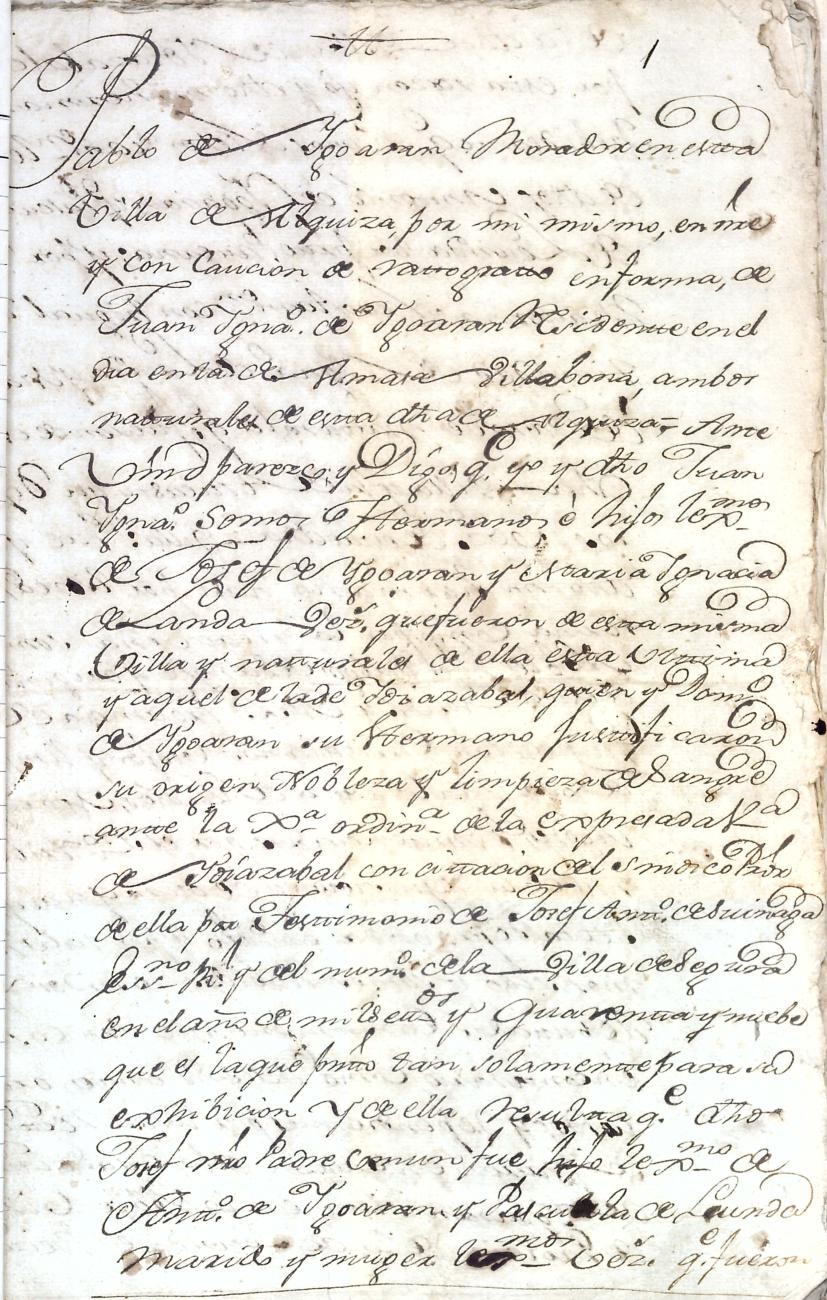 1
Pablo de Ygoaran Morador en esta
Villa de Alquiza, por mi mismo, en nre
y con Caucion de rato grato en forma, de
Juan Ygna.º de Ygoaran Residente en el
dia en la de Amasa Villabona, ambos
naturales de esta dha de Alquiza = Ante
Vmd parezco, y Digo, q.e yo y dho Juan
Ygna.º somos Hermanos è hijos lexmos
de Josef de Ygoaran y Maria Ygnacia
de Landa Vez.s que fueron de esta misma
Villa y naturales de ella esta Ultima
y aquel de la de Ydiazabal, quien y Dom.º
de Ygoaran su Hermano justificaron
su origen Nobleza y limpieza de Sangre
ante la Xa ordin.a de la expresada Va
de Ydiazabal con citacion del sindico Pror
de ella por Testimonio de Josef Ant.º de
Essno Rl y del num.º de la Villa de Segura
en el año de mil setos y Quarenta y nuebe
que es la que pnto tan solamente para su
exhibicion y de ella resulta q.e dho
Josef nro Padre comun fue hijo lexmo de
Ant.º de Ygoaran y Pascuala de Leunda
marido y muger lexmos Vez.s q.e fueron